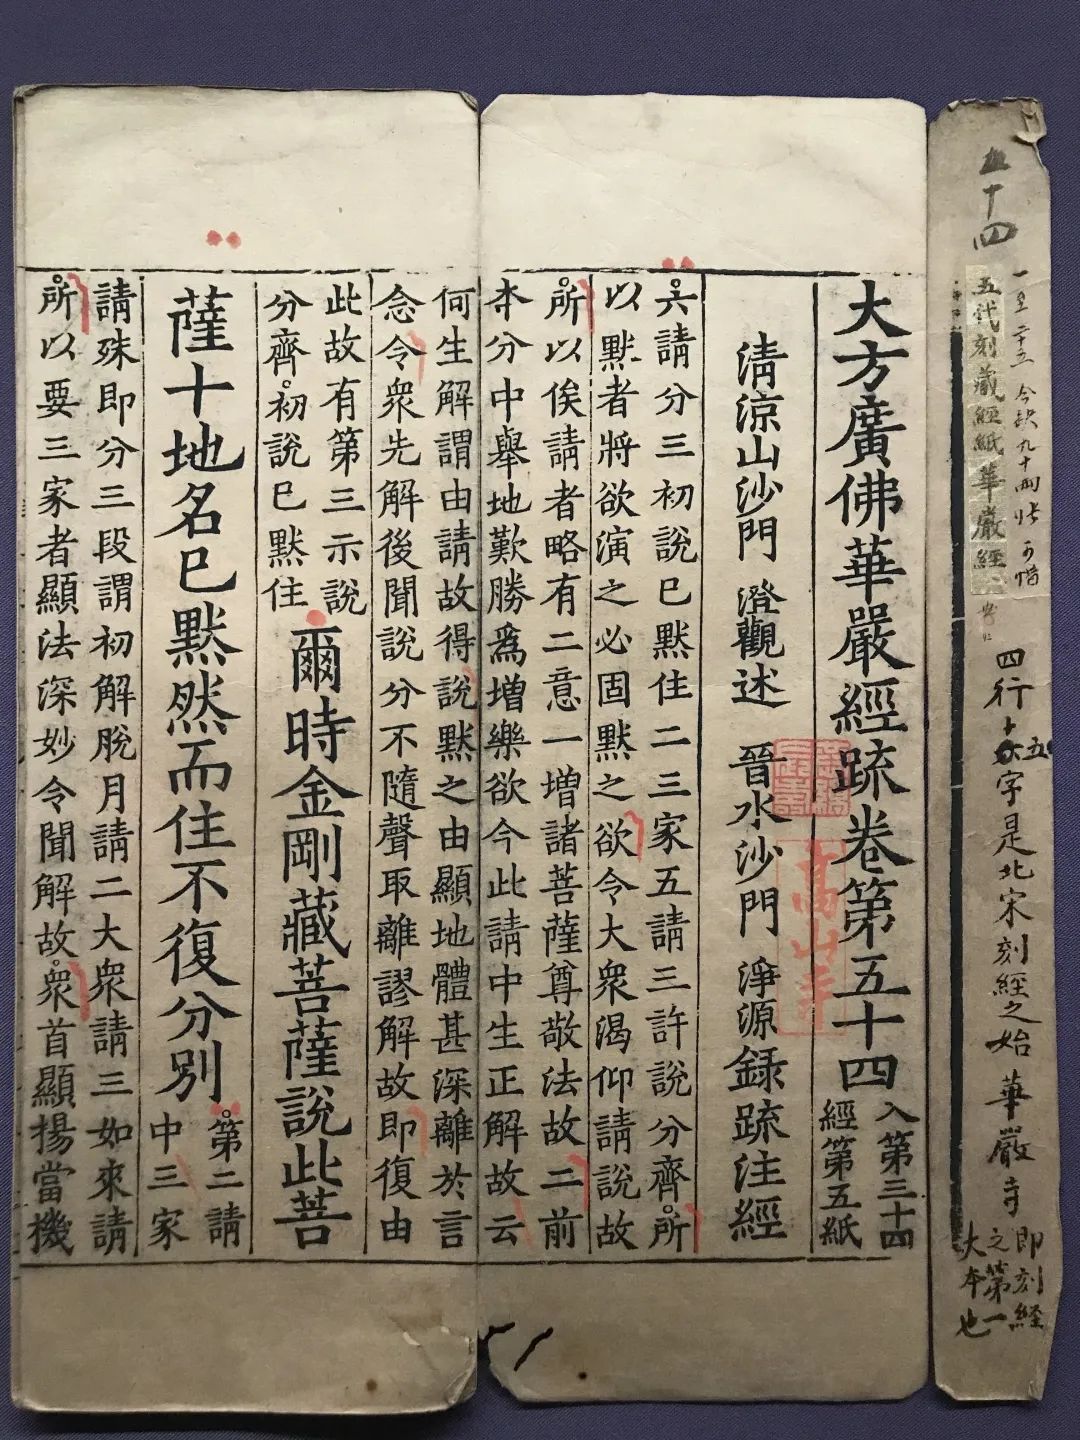 五十四
一至二十五 今缺九十兩
五代刻藏經紙華嚴經
四行十五字是北宋刻經之始 華嚴寺
即刻經
之第一
大本也
大方廣佛華嚴經疏卷第五十四
入第三十四
經第五紙
高山寺
清涼山沙門 澄觀述 晉水沙門 淨源録疏注經
六請分三初說已默住二三家五請三許說分齊所
以默者將欲演之必固默之欲令大衆渴仰請說故
所以俟請者略有二意一增諸菩薩尊敬法故二前
本分中舉地歎勝爲增樂欲今此請中生正解故云
何生解謂由請故得說默之由顯地體甚深離於言
念令衆先解後聞說分不隨聲取離謬解故即復由
此故有第三示說
分齊初說已默住
爾時金剛藏菩薩說此菩
薩十地名已默然而住不復分別
第二請
中三家
請殊即分三段謂初解脫月請二大衆請三如來請
所以要三家者顯法深妙令聞解故衆首顯揚當機